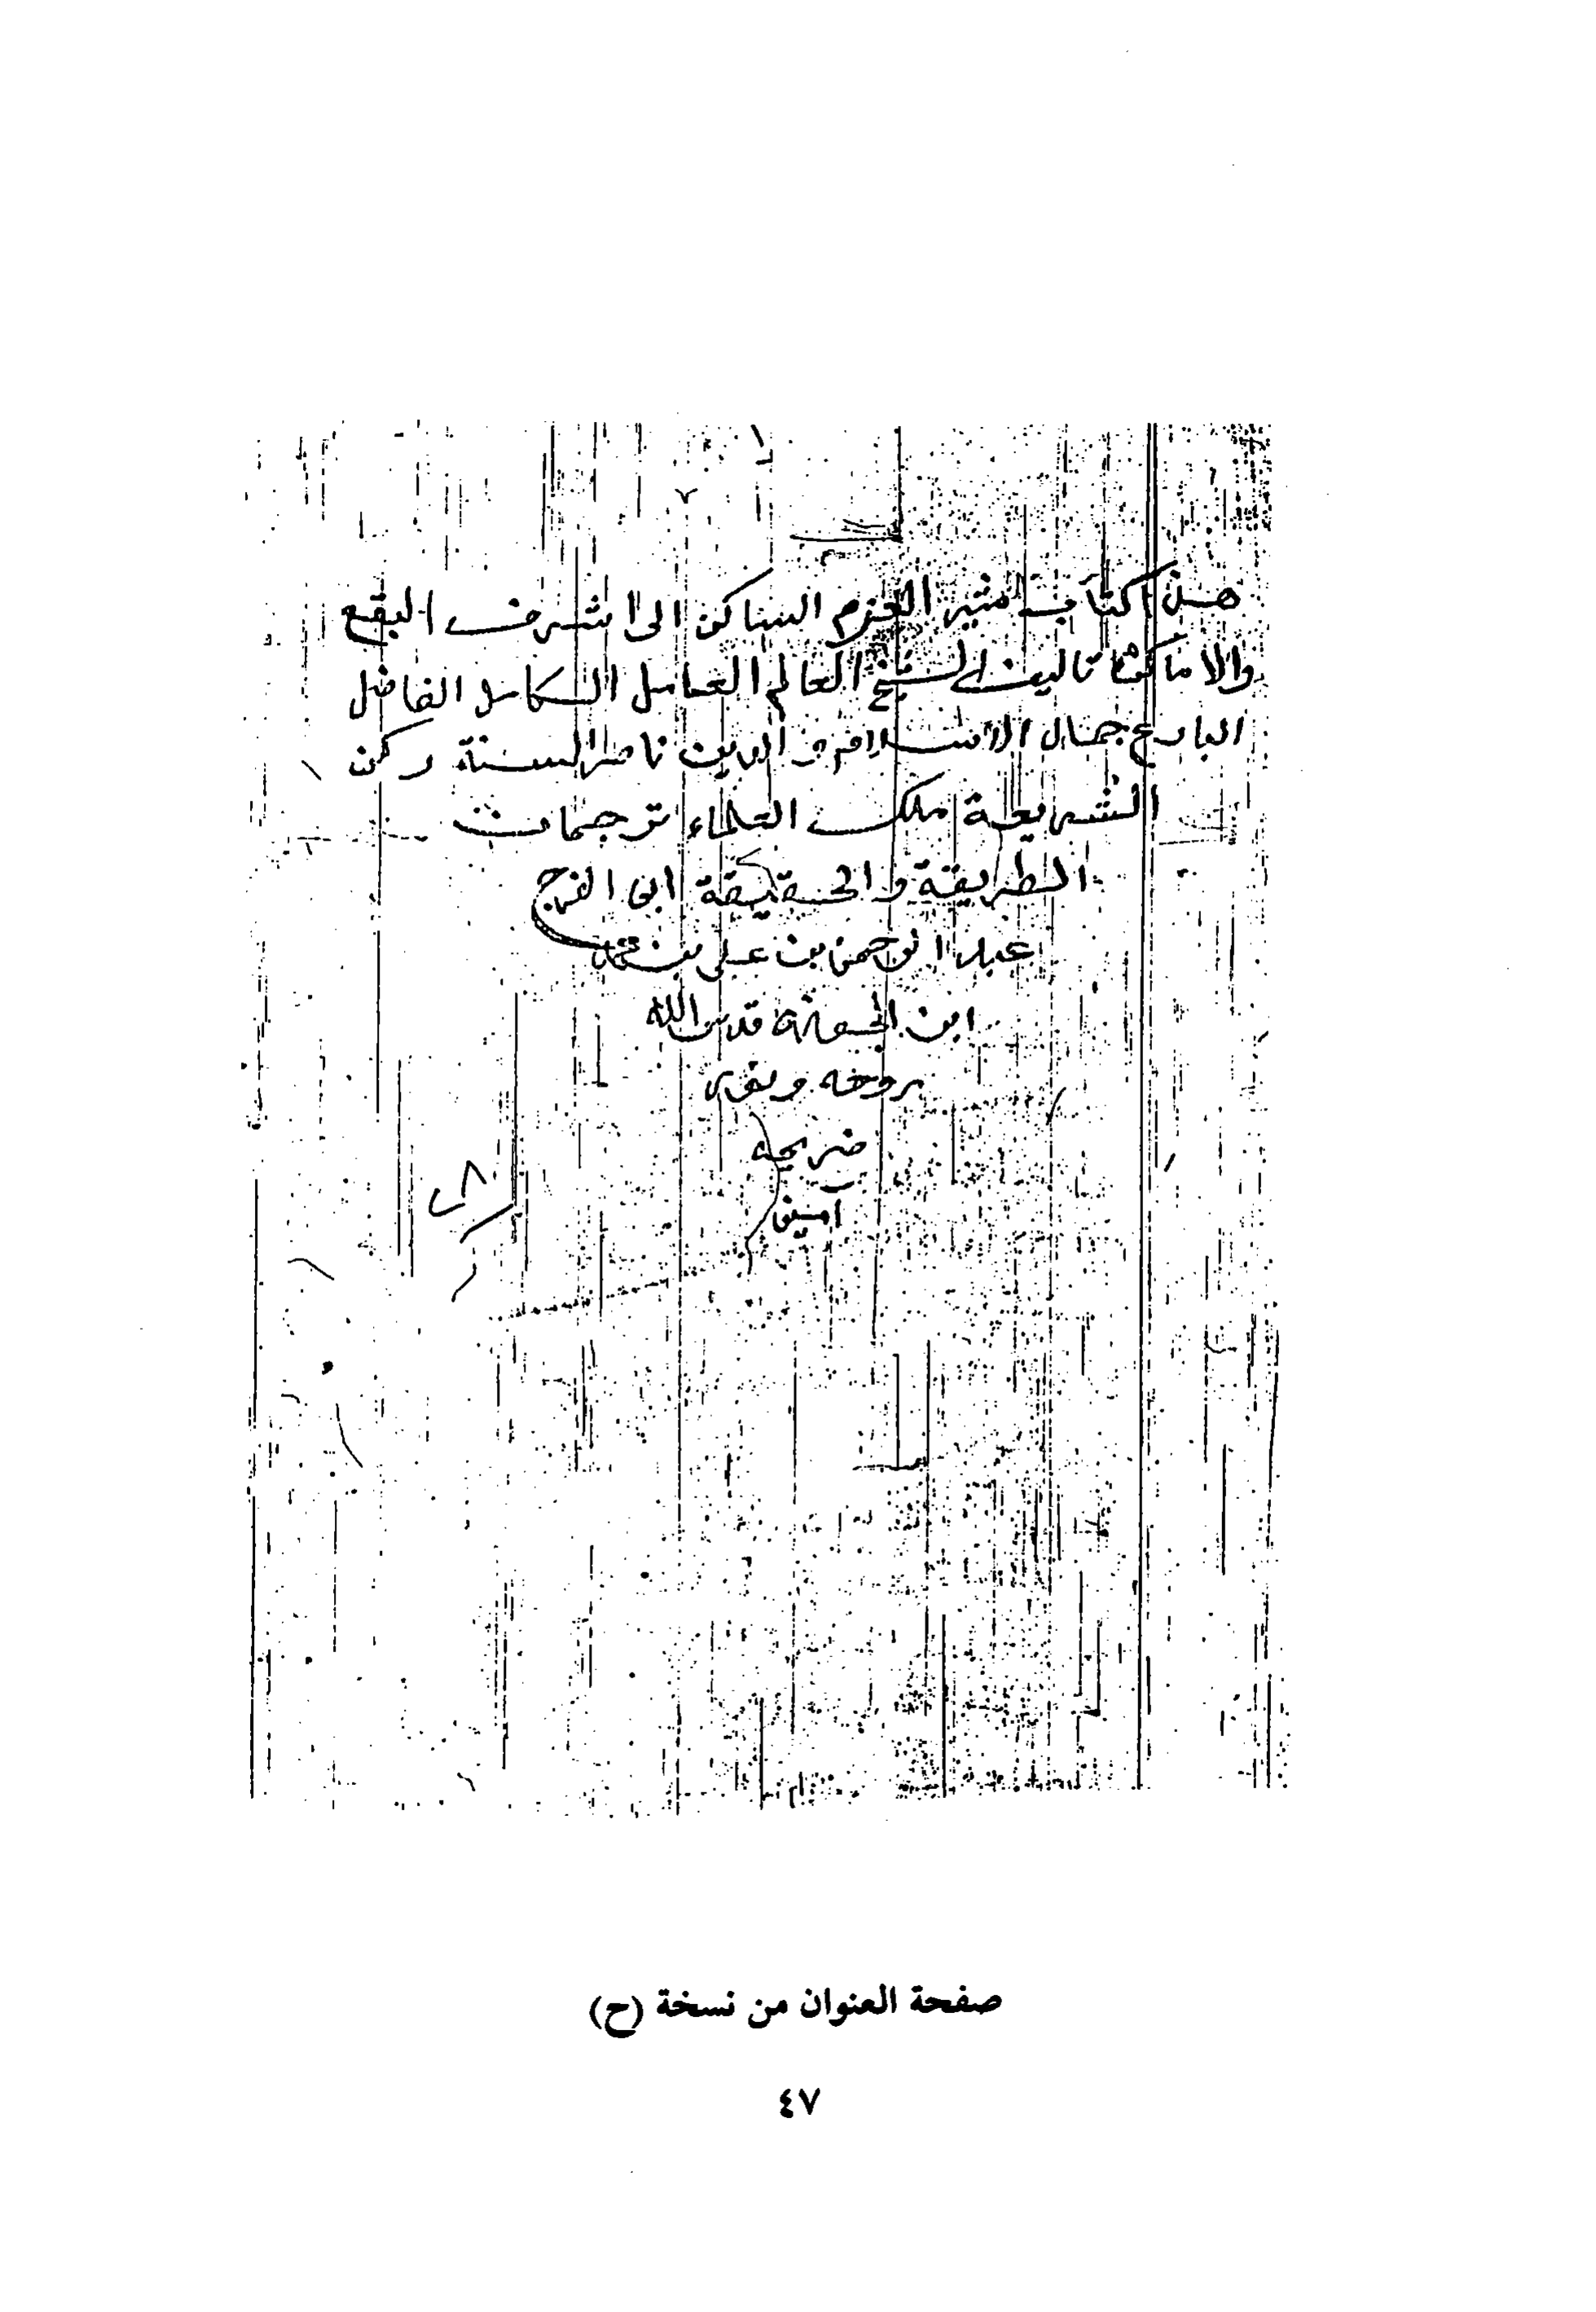 هذا كتاب مثير العزم الساكن الى اشرف البقع
والاماكن تاليف الشيخ العالم العامل الكامل الفاضل
البارع جمال الاسلام و الدين ناصر السنة ركن
الشريعة ملك العلماء ترجمان
الطريقة والحقيقة ابى الفرج
عبد الرحمن بن على بن محمد
ابن الجوزى قدس الله
روحه ونور
ضريحه
امين
صفحة العنوان من نسخة (ح)
٤٧